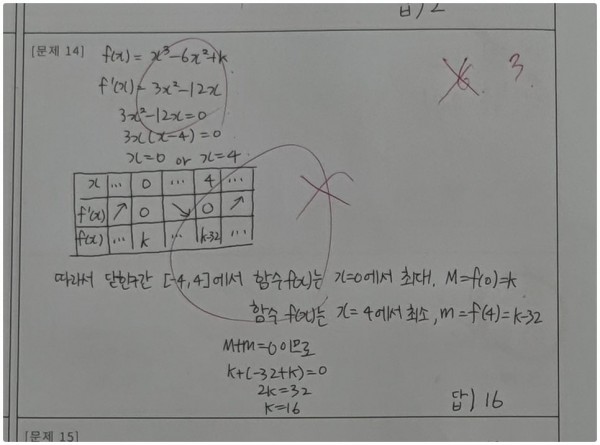 답) 2
[문제 14]
f(x) = x³-6x²+k
f'(x) = 3x²-12x
3x²-12x=0
3x(x-4)=0
x=0 or x=4
6. 3.
x ... 0 ... 4 ...
f'(x) ↗ 0 ↘ 0 ↗
f(x) ... k ... k-32 ...
따라서 닫힌구간 [-4,4]에서 함수 f(x)는 x=0에서 최대, M=f(0)=k
함수 f(x)는 x=4에서 최소, m=f(4)=k-32
M+m=0이므로
k+(-32+k)=0
2k=32
k=16
답) 16
[문제 15]